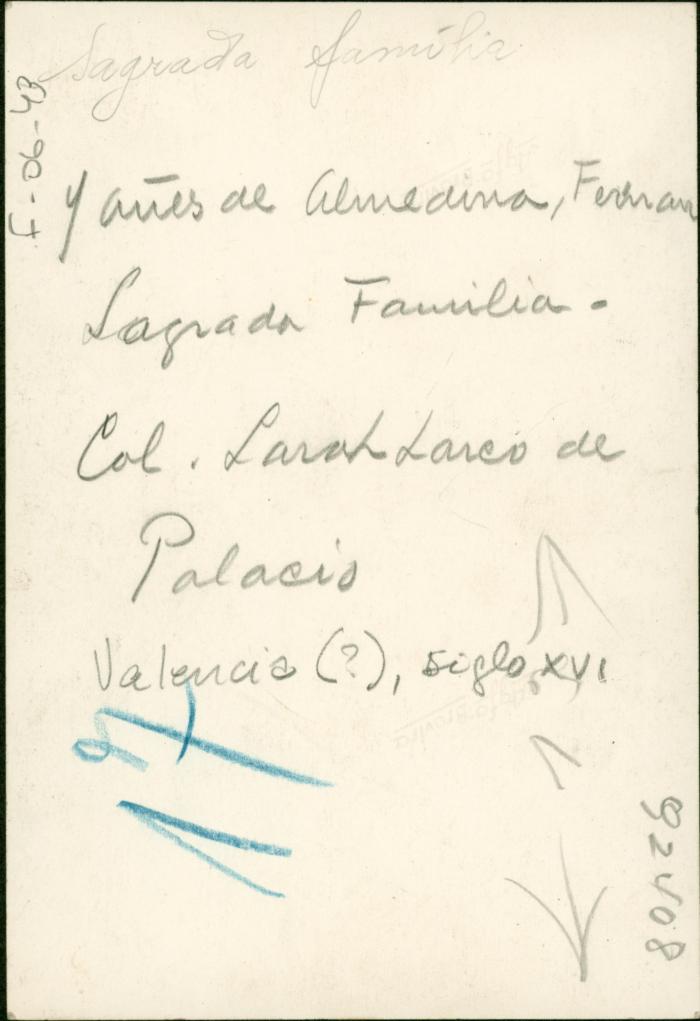 Sagrada familia
F-06-43
Yañes de Almedina, Ferran
Sagrada Familia.
Col. Sarah Larco de
Palacio
Valencia (?), siglo XVI